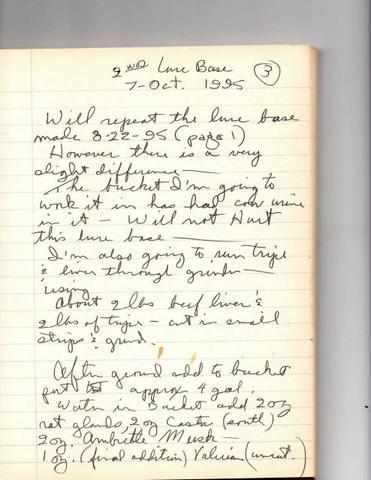 2nd Lure Base
3
7-Oct. 1995
Will repeat the lure base
made 3-22-95 (page 1)
However there is a very
slight difference—
The bucket I'm going to
work it in has had cow urine
in it — Will not Hurt
this lure base —
I'm also going to run tripe
& liver through grinder —
using
About 2 lbs beef liver &
2 lbs of tripe - cut in small
strips & grind.
After ground add to bucket
put approx 4 gal.
Water in Bucket add 2 oz
rat glands, 2 oz Castor (south)
2 oz. Ambrette Musk —
1 oz. (final addition) Valerian (